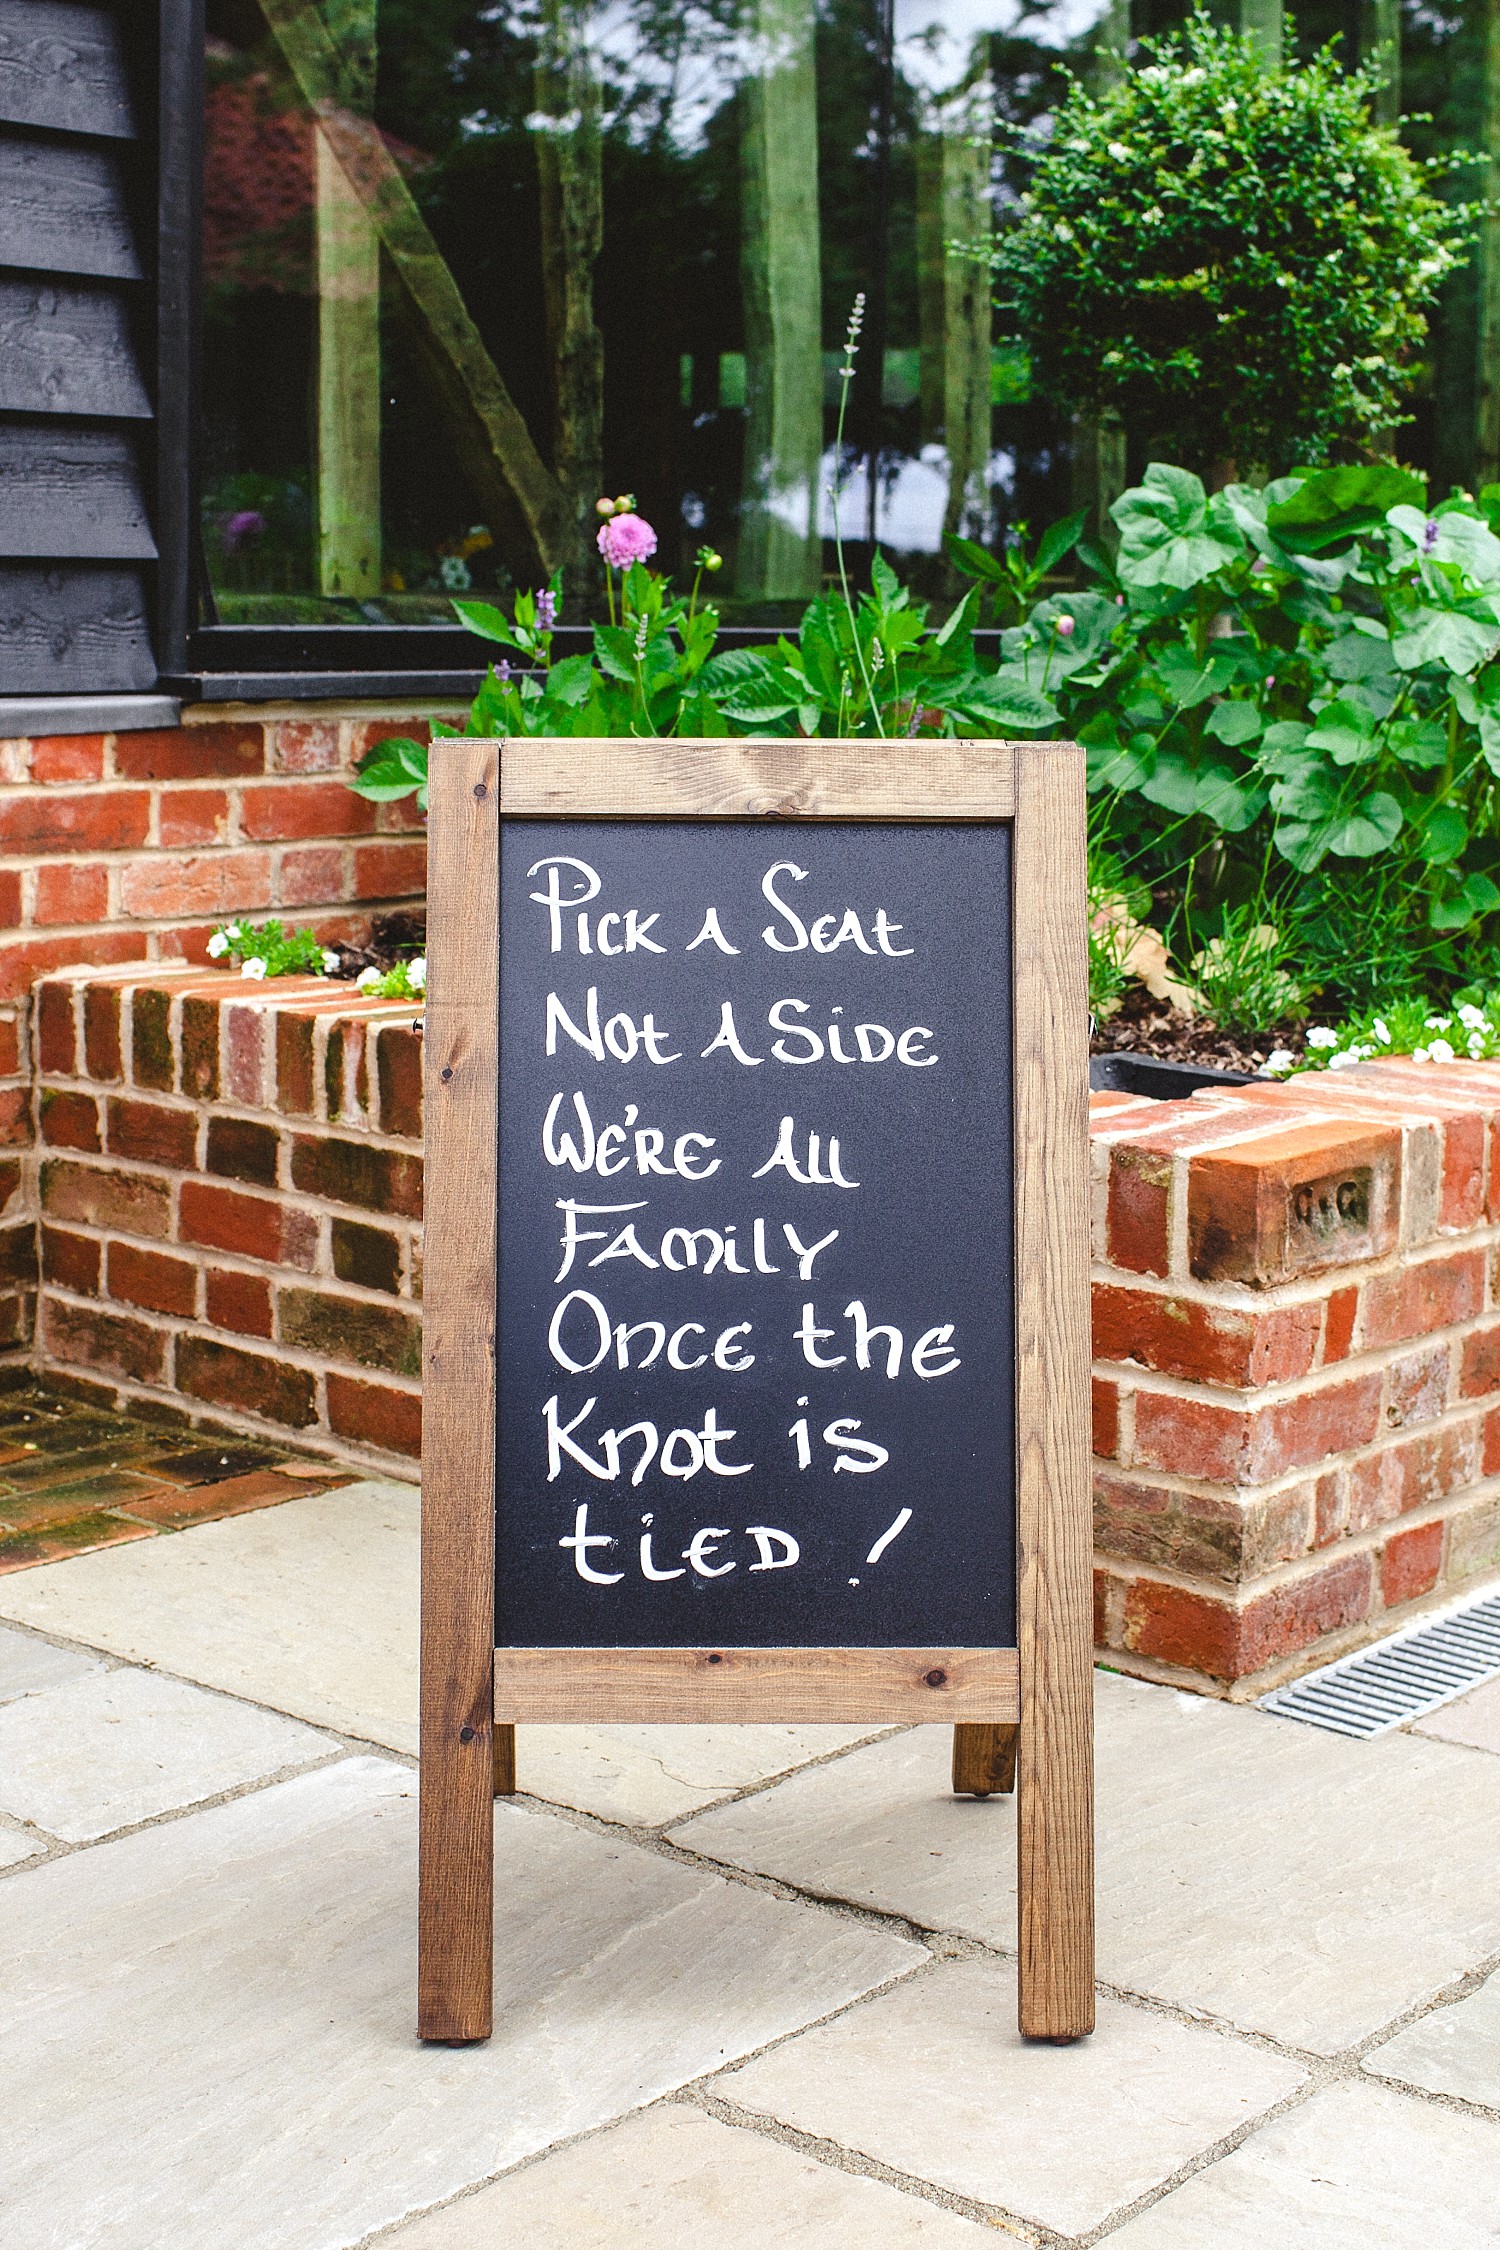 Pick a Seat
Not a Side
We're All
Family
Once the
Knot is
tied !
G&G